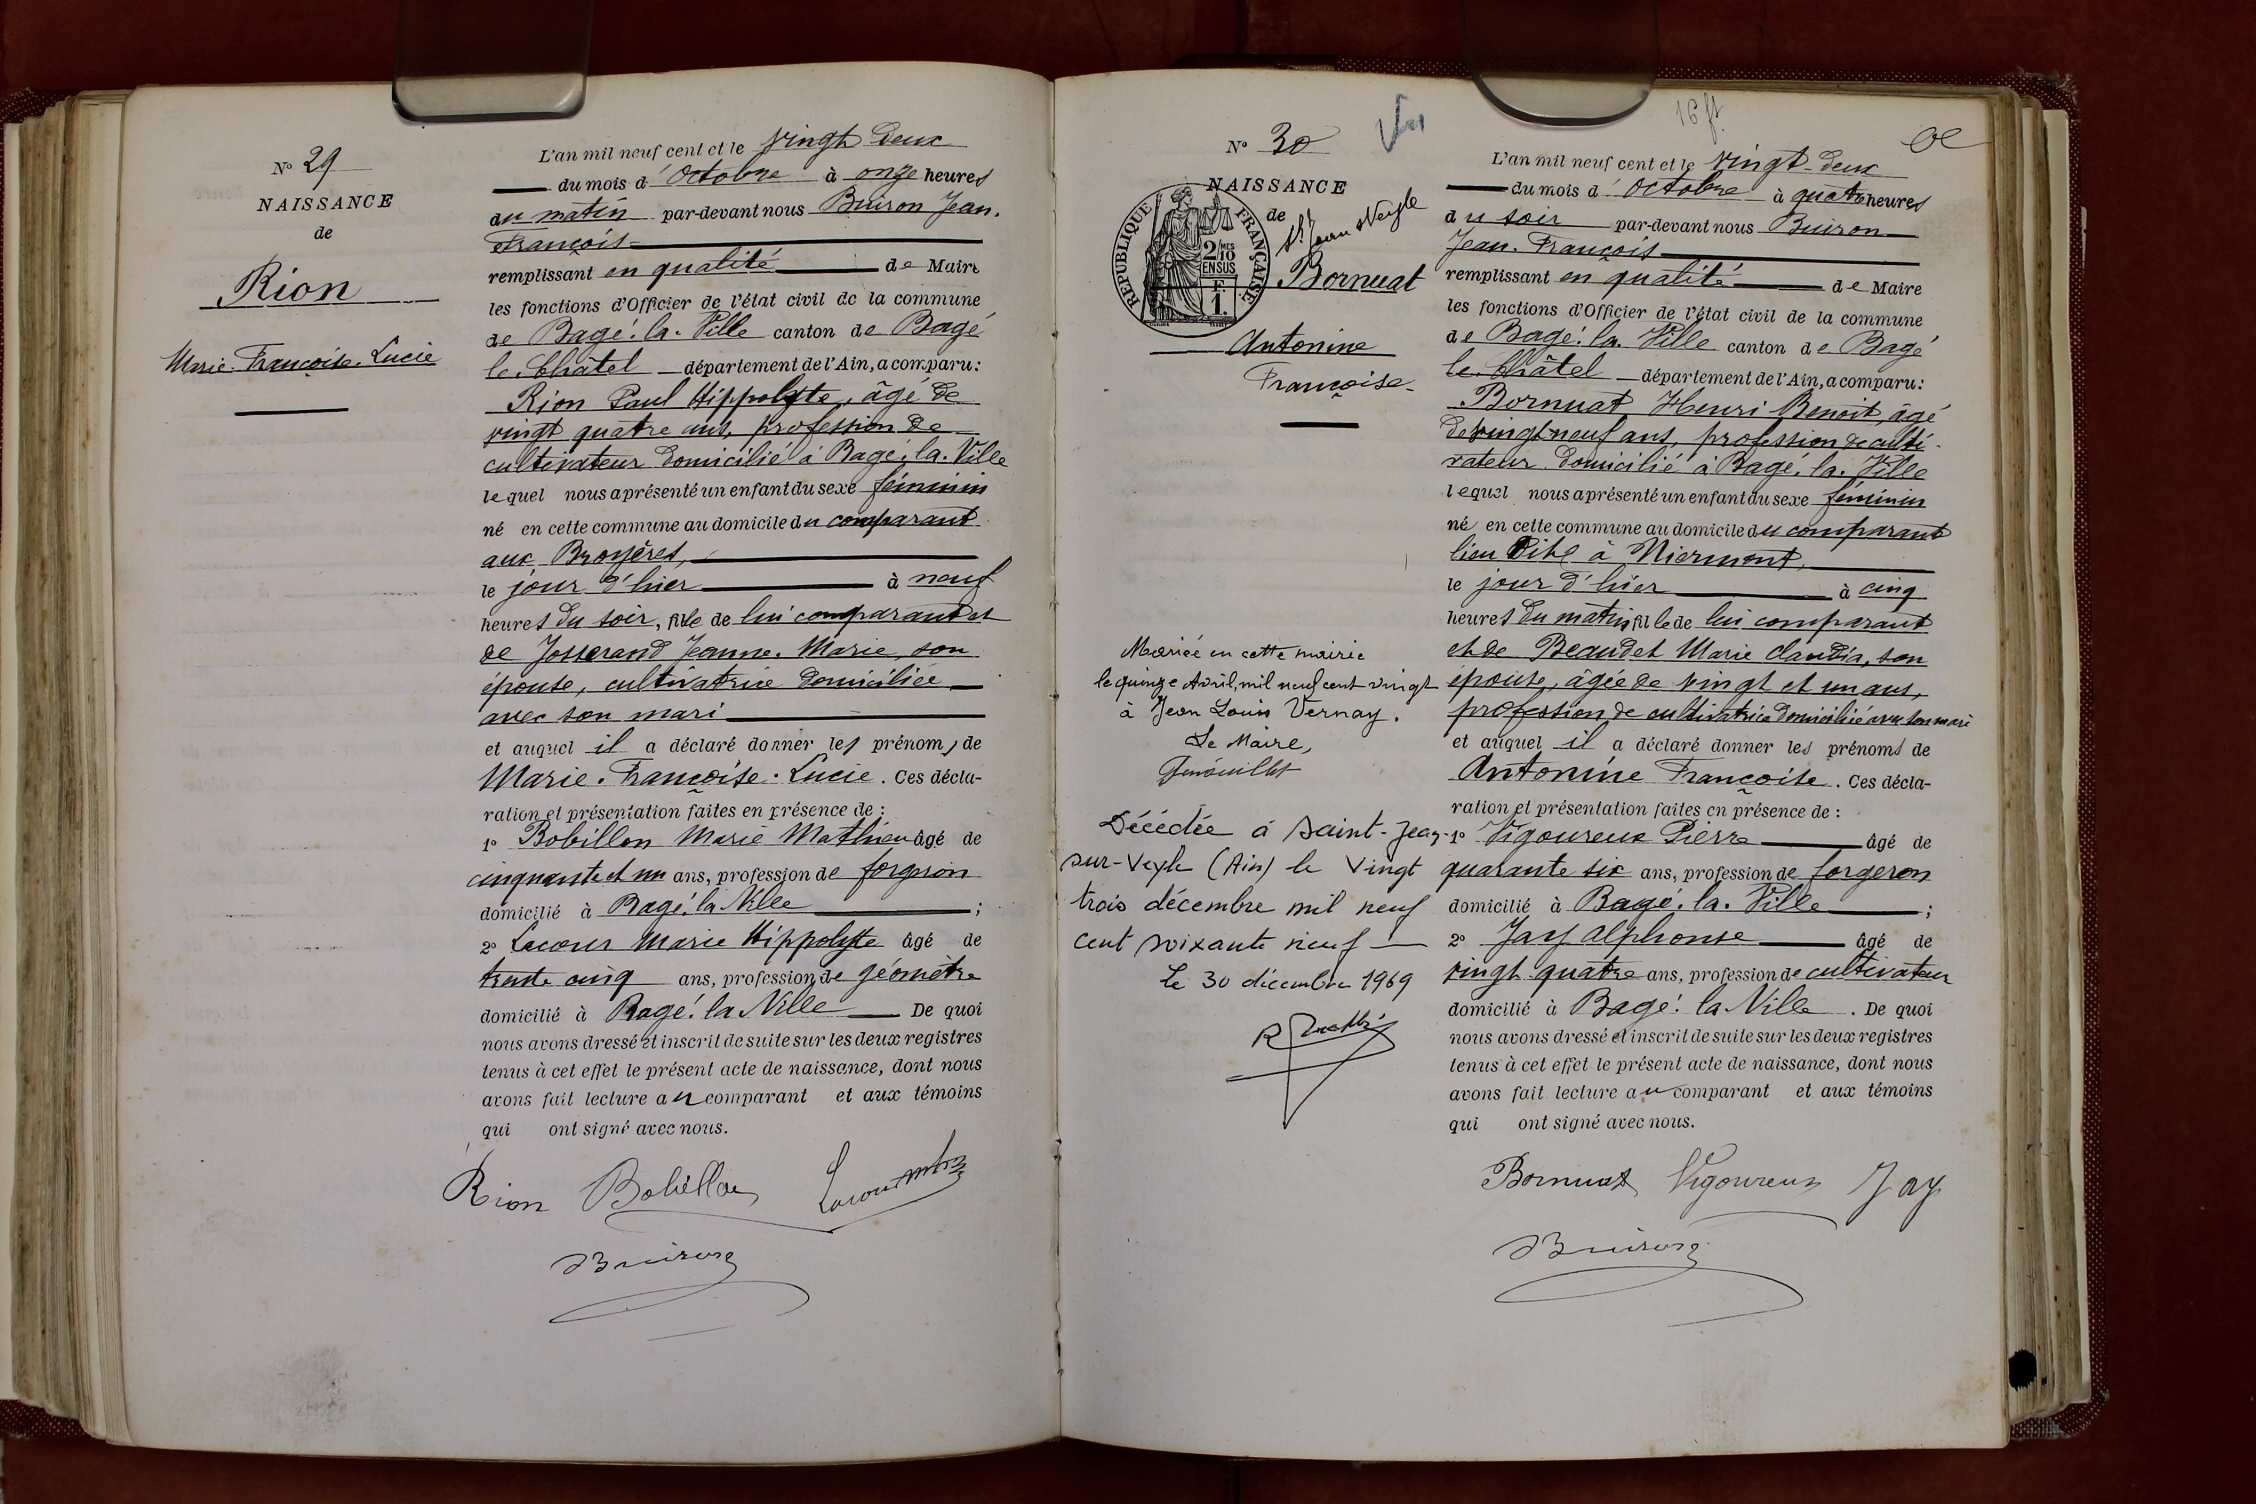 N° 29
NAISSANCE
de
Rion
Marie. Françoise. Lucie
L'an mil neuf cent et le vingt deux
du mois d'Octobre à onze heures
du matin par-devant nous Buiron Jean.
François
remplissant en qualité de Maire
les fonctions d'Officier de l'état civil de la commune
de Bagé. la. Ville canton de Bagé
le. Châtel département de l'Ain, a comparu:
Rion Paul Hippolyte, âgé de
vingt quatre ans, profession de
cultivateur domicilié à Bagé. la. Ville
lequel nous a présenté un enfant du sexe féminin
né en cette commune au domicile du comparant
aux Bruyères,
le jour d'hier à neuf
heures du soir, fille de lui comparant et
de Josserand Jeanne. Marie, son
épouse, cultivatrice domiciliée
avec son mari
et auquel il a déclaré donner les prénoms de
Marie. Françoise. Lucie. Ces décla-
ration et présentation faites en présence de :
1° Bobillon Marie Mathieu âgé de
cinquante et un ans, profession de forgeron
domicilié à Bagé. la Ville ;
2° Lacour Marie Hippolyte âgé de
trente cinq ans, profession de géomètre
domicilié à Bagé. la Ville De quoi
nous avons dressé et inscrit de suite sur les deux registres
tenus à cet effet le présent acte de naissance, dont nous
avons fait lecture au comparant et aux témoins
qui ont signé avec nous.
Rion Bobillon
Buiron
16 ft
N° 30
NAISSANCE
de
St Jean s/Veyle
RÉPUBLIQUE FRANÇAISE
2/10 MES
EN SUS
F.
1.
Bornuat
Antonine
Françoise
L'an mil neuf cent et le vingt-deux
du mois d'Octobre à quatre heures
du soir par-devant nous Buiron
Jean. François
remplissant en qualité de Maire
les fonctions d'Officier de l'état civil de la commune
de Bagé. la. Ville canton de Bagé
le. Châtel département de l'Ain, a comparu:
Bornuat Henri Benoit, âgé
de vingt neuf ans, profession de culti-
vateur domicilié à Bagé. la. Ville
lequel nous a présenté un enfant du sexe féminin
né en cette commune au domicile du comparant
lieu dit à Niermont,
le jour d'hier à cinq
heures du matin fille de lui comparant
et de Beaudet Marie Claudia, son
épouse, âgée de vingt et un ans,
profession de cultivatrice domicilié avec son mari
et auquel il a déclaré donner les prénoms de
Antonine Françoise. Ces décla-
ration et présentation faites en présence de :
1° Vigoureux Pierre âgé de
quarante six ans, profession de forgeron
domicilié à Bagé. la. Ville ;
2° Jay Alphonse âgé de
vingt quatre ans, profession de cultivateur
domicilié à Bagé. la Ville. De quoi
nous avons dressé et inscrit de suite sur les deux registres
tenus à cet effet le présent acte de naissance, dont nous
avons fait lecture au comparant et aux témoins
qui ont signé avec nous.
Bornuat Vigoureux Jay
Buiron
Mariée en cette mairie
le quinze Avril, mil neuf cent vingt
à Jean Louis Vernay.
Le Maire,
Décédée à Saint-Jean-
sur-Veyle (Ain) le vingt
trois décembre mil neuf
cent soixante neuf
Le 30 décembre 1969